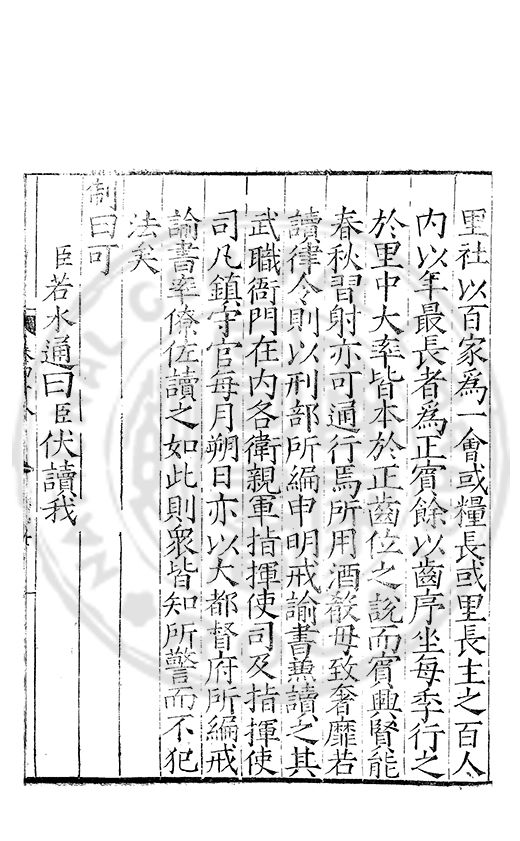 里社以百家爲一會或糧長或里長主之百人
内以年最長者爲正賓餘以齒序坐每季行之
於里中大率皆本於正齒位之說而賓興賢能
春秋習射亦可通行焉所用酒殽毋致奢靡若
讀律令則以刑部所編申明戒諭書兼讀之其
武職衙門在内各衛親軍指揮使司及指揮使
司凡鎮守官每月朔日亦以大都督府所編戒
諭書率僚佐讀之如此則衆皆知所警而不犯
法矣
制曰可
臣若水通曰臣伏讀我